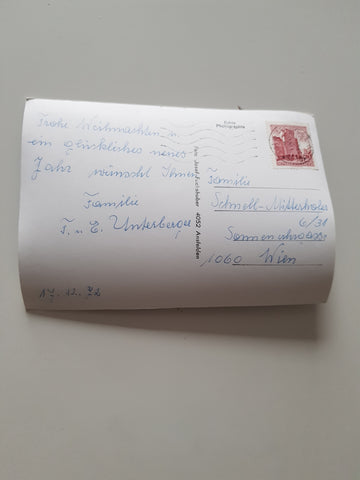 Frohe Weihnachten u.
ein glückliches neues
Jahr wünscht Ihnen
Familie
F. u. E. Unterberger
17. 12. 72
Echte
Photographie
4052 Ansfelden
Familie
Schnell-Mitterhofer
6/31
1060 Wien